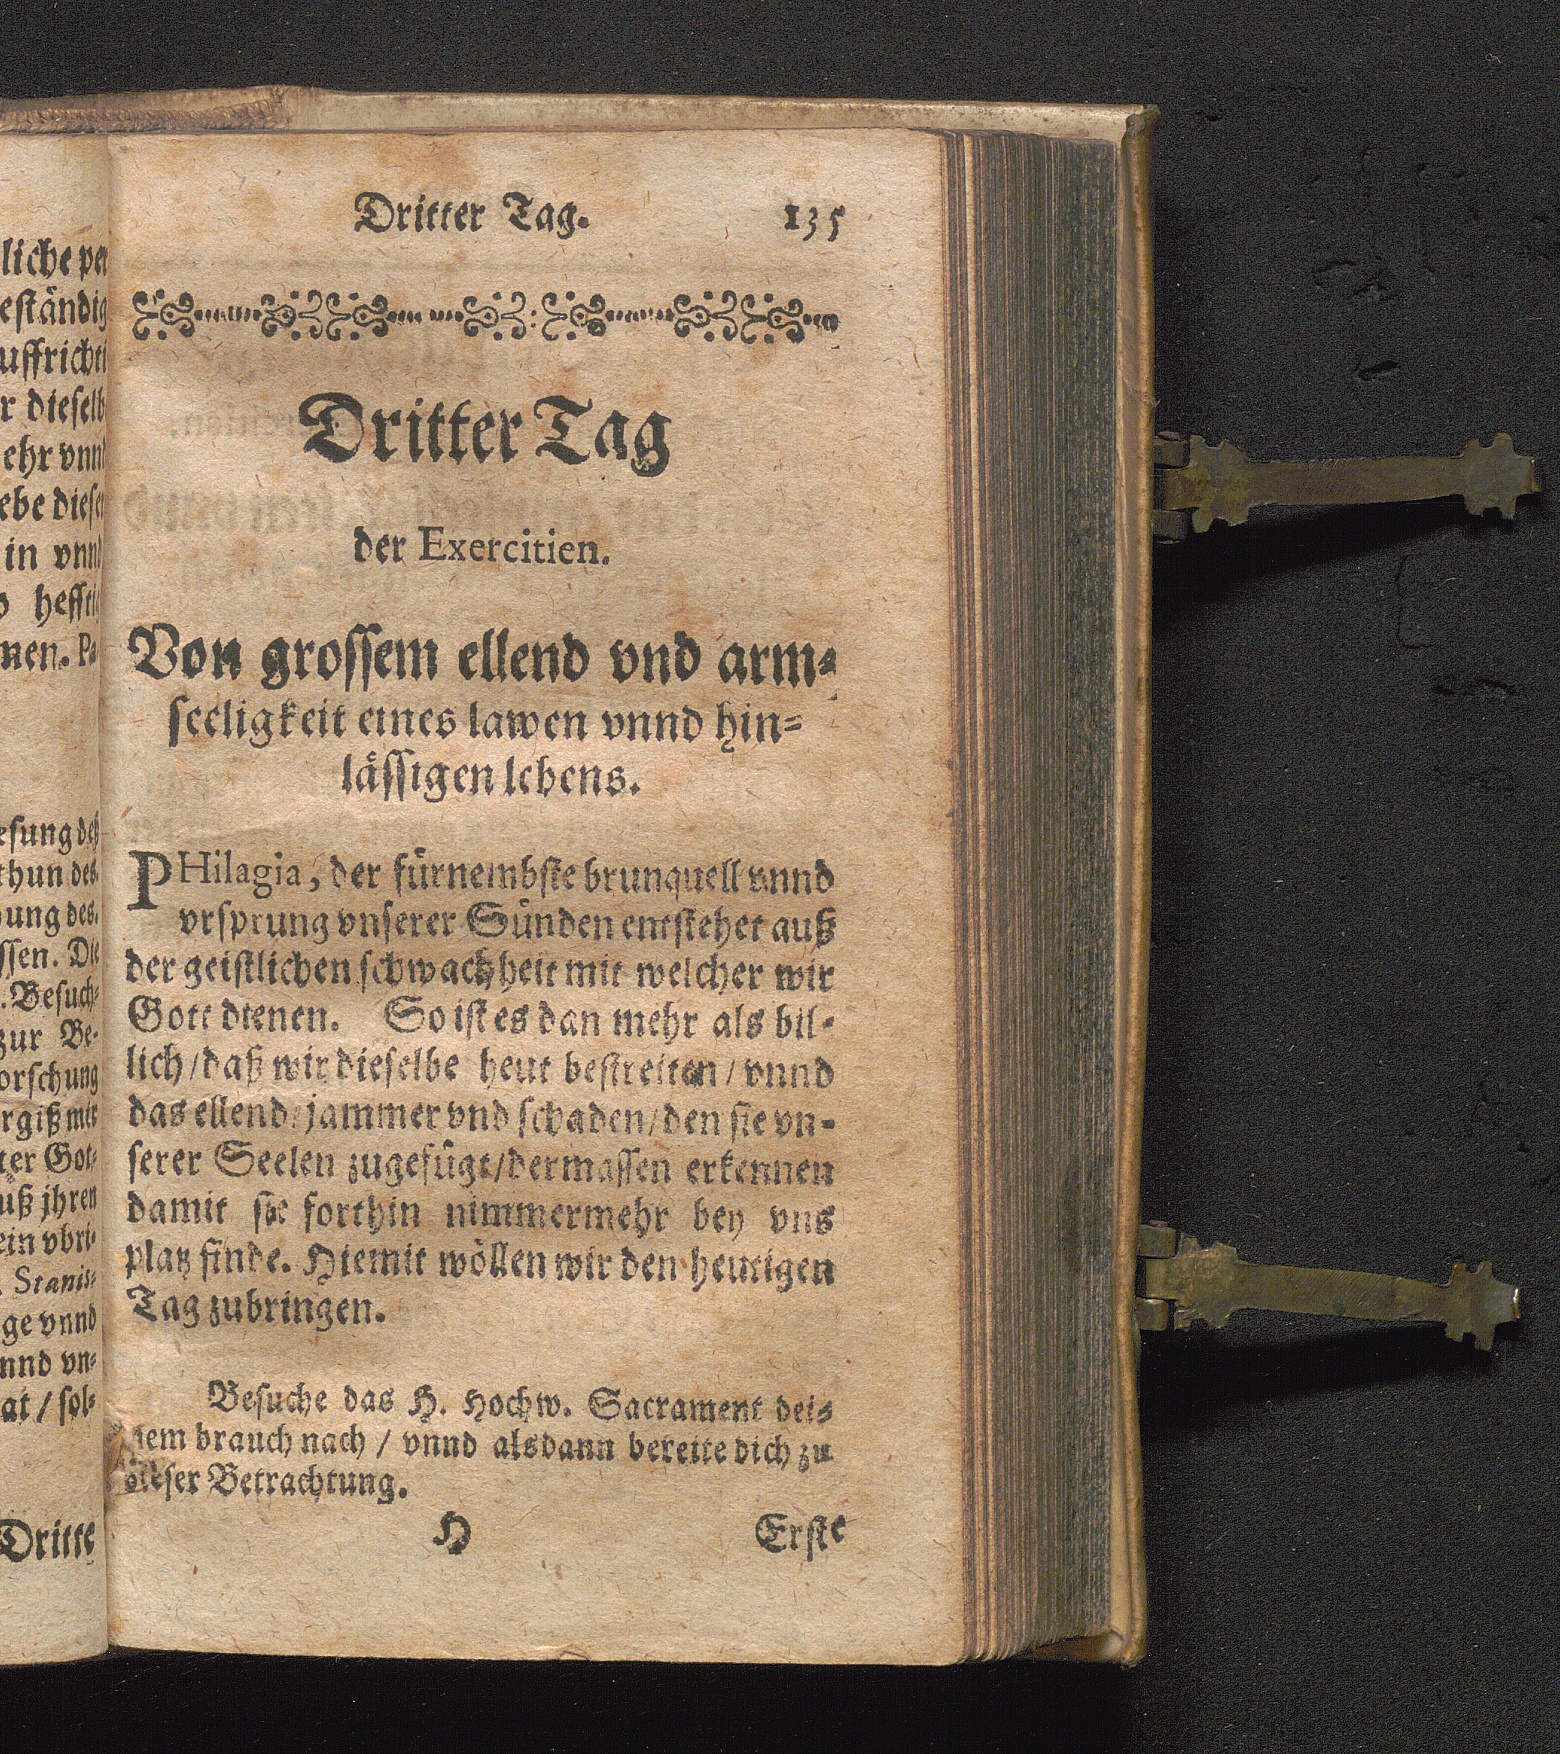 liche per
eständig
uffrichti
r dieselb
ehr vnnd
ebe dieser
in vnnd
hefftig
nen. Pa
esung deß
thun des
ung des
ssen. Die
. Besuch-
zur Be-
orschung
rgiß mir
ter Got-
uß jhren
ein vbri-
. Stanis-
ge vnnd
nnd vn-
at / sol-
Dritte
Dritter Tag. 135
Dritter Tag
der Exercitien.
Von grossem ellend vnd arm-
seeligkeit eines lawen vnnd hin-
lässigen lebens.
PHilagia, der fürnembste brunquell vnnd
vrsprung vnserer Sünden entstehet auß
der geistlichen schwachheit mit welcher wir
Gott dienen. So ist es dan mehr als bil-
lich / daß wir dieselbe heut bestreiten / vnnd
das ellend / jammer vnd schaden / den sie vn-
serer Seelen zugefügt / dermassen erkennen
damit sie forthin nimmermehr bey vns
platz finde. Hiemit wöllen wir den heutigen
Tag zubringen.
Besuche das H. Hochw. Sacrament dei-
nem brauch nach / vnnd alsdann bereite dich zu
dieser Betrachtung.
H Erste